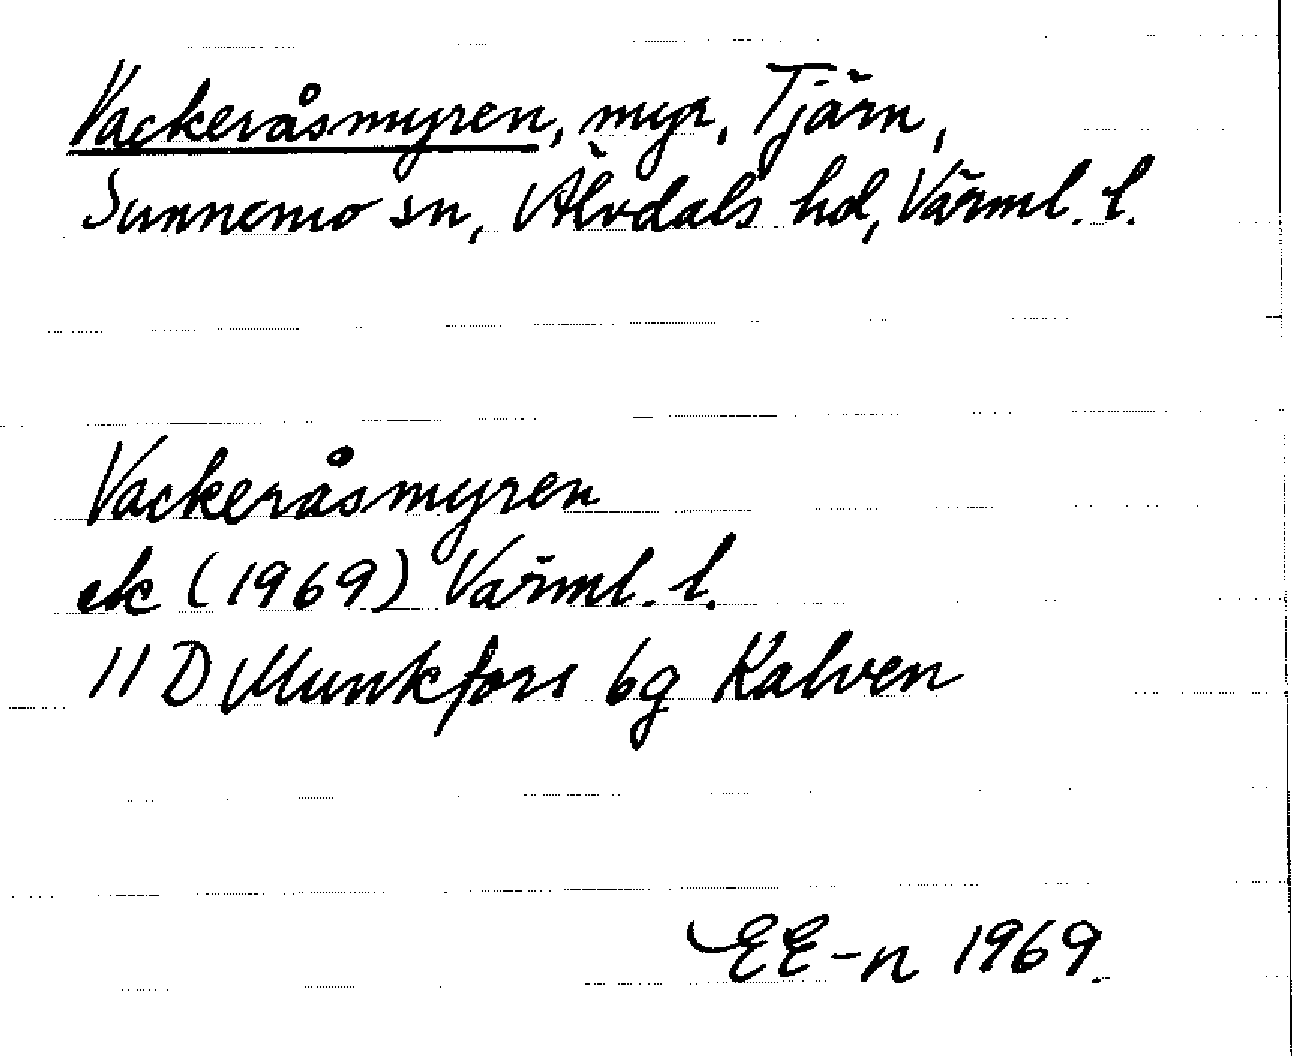 Vackeråsmyren, myr, Tjärn,
Sunnemo sn, Älvdals hd, Värml. l.
Vackeråsmyren
ek (1969) Värml. l.
11 D Munkfors 6g Kalven
EE-n 1969.